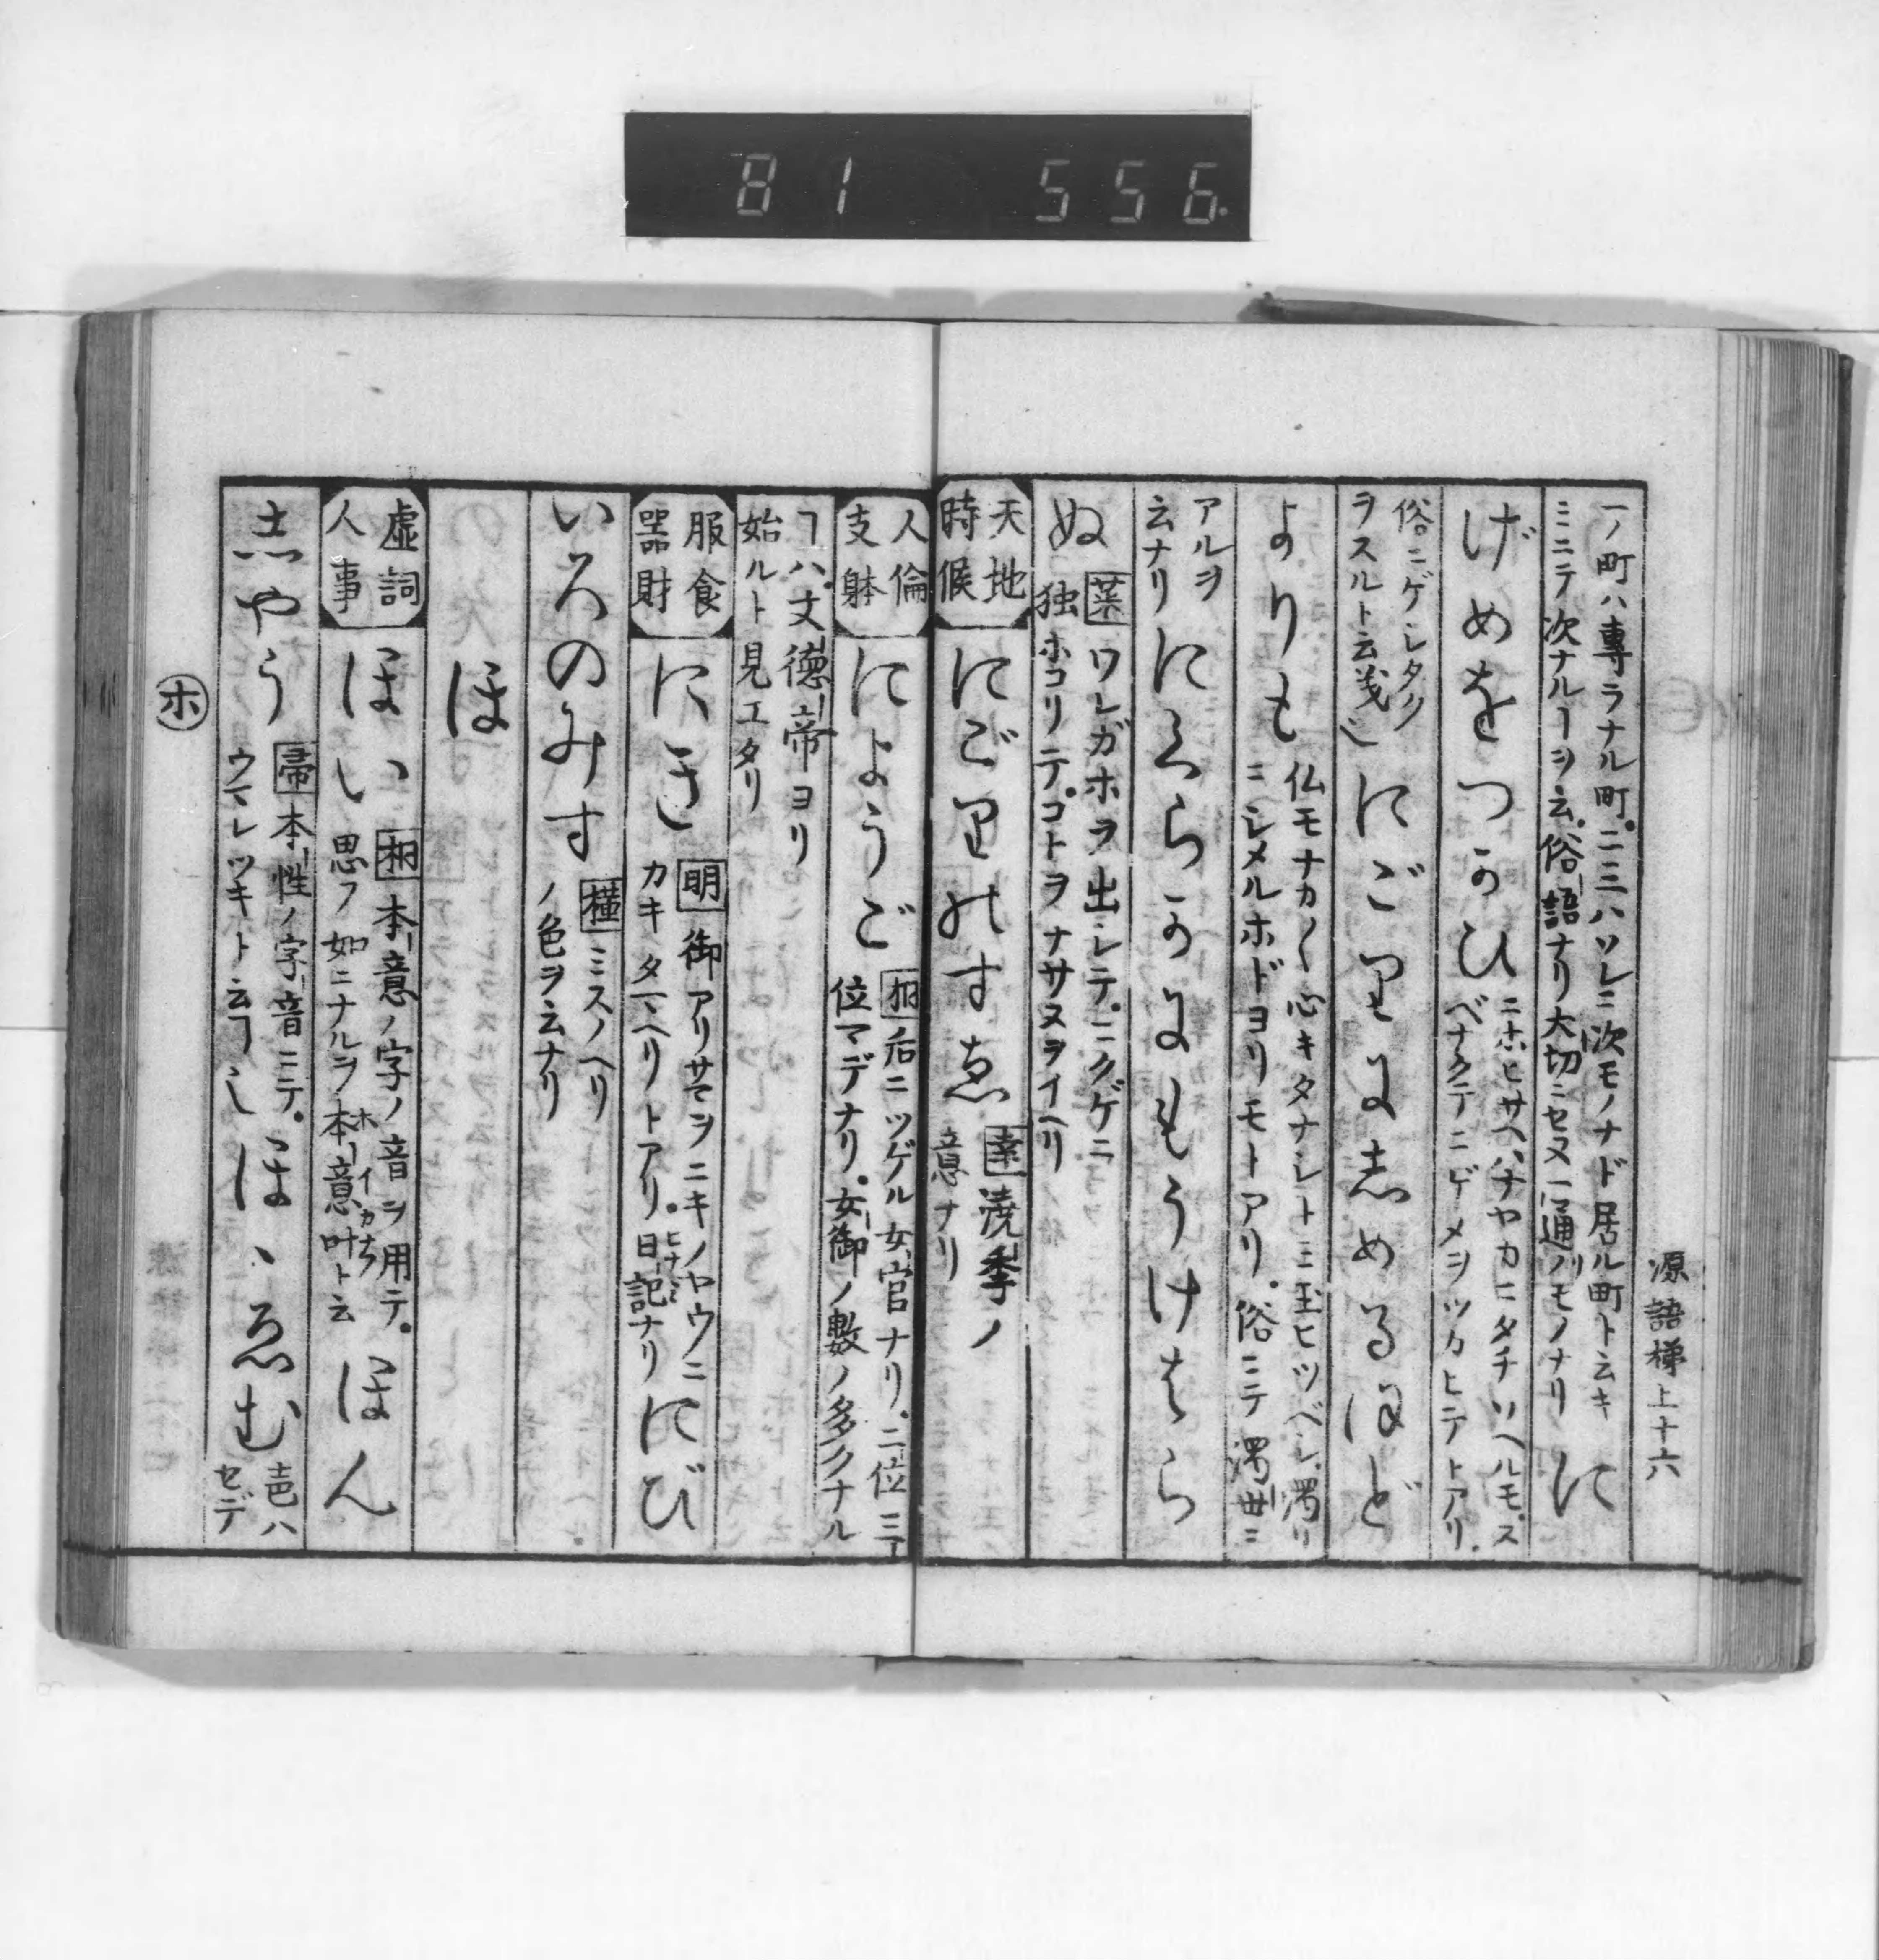 81 556
源語梯上十六
一ノ町ハ專ラナル町。二三ハソレニ次モノナド居ル町ト云キ
ミニテ次ナルヿヲ云。俗語ナリ大切ニセヌ一ニ通ノリモノナリ
に
げめをつかひ
ニホヒサヘハナヤカニタチソヘルモ。ス
ベナクテニゲメヲツカヒテトアリ。
俗ニゲシタツ
ヲスルト云義也
にごりにしめるほど
よりも
仏モナカ〳〵心キタナシトミ玉ヒツベシ。濁リ
ニシメルホドヨリモトアリ。俗ニテ濁世ニ
アルヲ
云ナリ
にくらかにもうけはら
ぬ
葉 ワレガホヲ出シテ。ニクゲニ
独ホコリテ。コトヲナサヌヲイヘリ
天地
時候
にごりのすゑ
蓬 澆季ノ
意ナリ
人倫
支躰
にようご
桐 后ニツゲル女官ナリ。二位三
位マデナリ。女御ノ數ノ多クナル
ヿハ。文德帝ヨリ
始ルト見エタリ
服食
噐財
にき
明 御アリサマヲニキノヤウニ
カキタマヘリトアリ。日記ナリ
にび
いろのみす
橫 ミスノヘリ
ノ色ヲ云ナリ
ほ
虛詞
人事
ほい
桐 本意ノ字ノ音ヲ用テ。
思フ如ニナルヲ本意叶ト云
ほん
志やう
帚 本性ノ字音ニテ。
ウマレツキト云ヿ也
ほゝゑむ
壱ハ
セデ
ホ